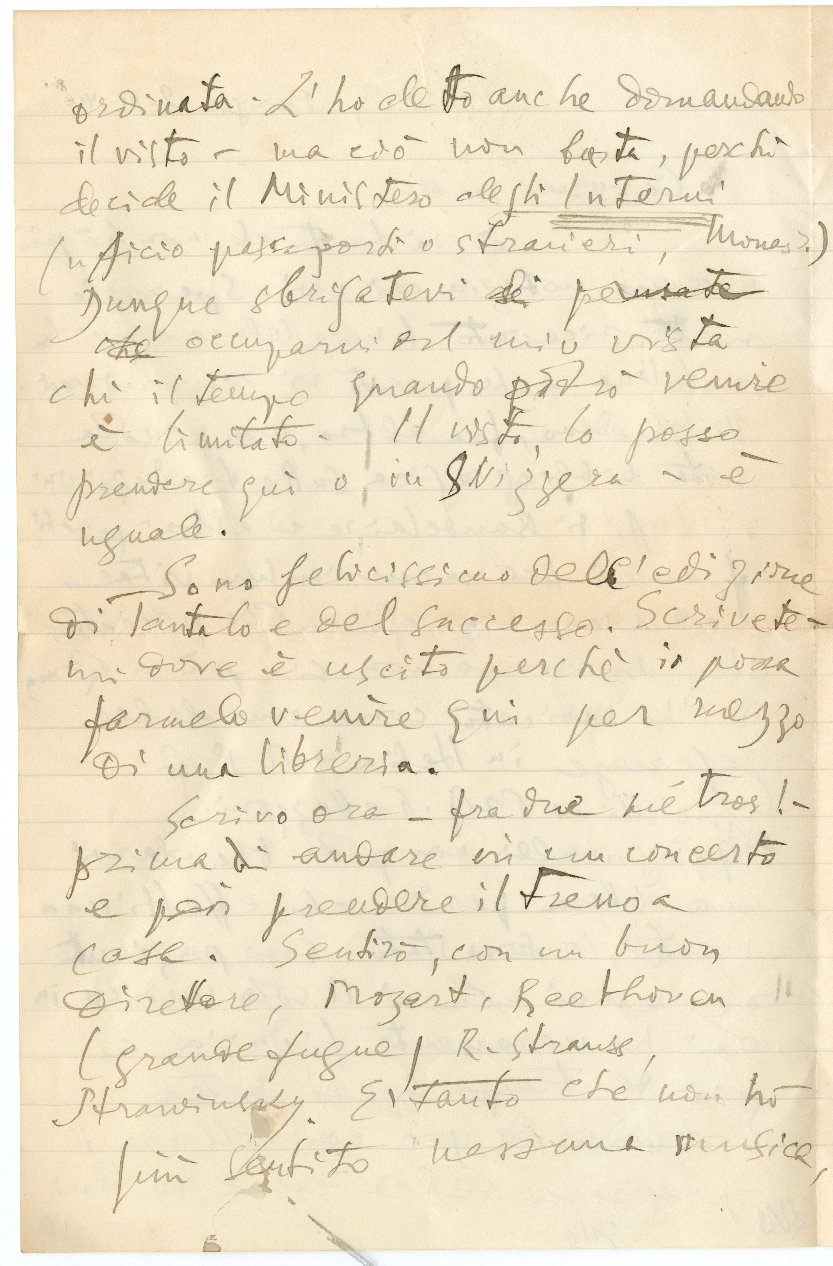 ordinata. L'ho detto anche domandando
il visto – ma ciò non basta, perchè
decide il Ministero degli Interni
(ufficio passaporti o stranieri,
Dunque sbrigatevi di pensate
che occuparvi del mio visto
chè il tempo quando potrò venire
è limitato. Il visto, lo posso
prendere qui o, in Svizzera – è
uguale.
Sono felicissimo dell'edizione
di Tantalo e del successo. Scrivete-
mi dove è uscito perchè io possa
farmelo venire qui per mezzo
di una libreria.
Scrivo ora – fra due métros! –
prima di andare in un concerto
e poi prendere il treno a
casa. Sentirò, con un buon
Direttore, Mozart, Beethoven
(grande fugue) R. Strauss,
Strawinsky. E' tanto che non ho
più sentito nessuna musica,